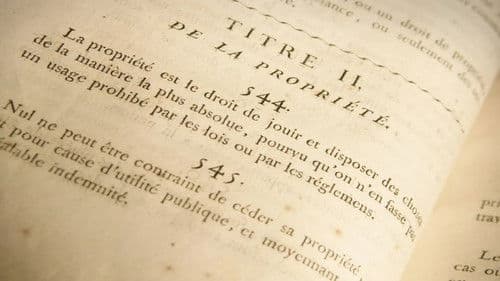 ou un droit de propriété
ou seulement des
TITRE II.
DE LA PROPRIÉTÉ.
544.
La propriété est le droit de jouir et disposer des choses
de la manière la plus absolue, pourvu qu'on n'en fasse pas
un usage prohibé par les lois ou par les réglemens.
545.
Nul ne peut être contraint de céder sa propriété,
pour cause d'utilité publique, et moyennant
indemnité.
Le
cas ou